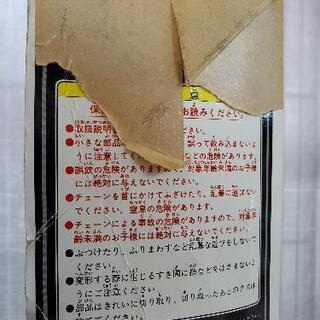 意
保 お読みください。
●取扱説明 さい。
●小さな部品 誤って飲み込まないよ
うに注意してく などの危険があります。
●誤飲の危険がありますので、対象年齢未満のお子様
には絶対に与えないでください。
●チェーンを首にかけてふざけたり、乱暴に遊ばない
でください。窒息の危険があります。
●チェーンによる事故の危険がありますので、対象年
齢未満のお子様には絶対に与えないでください。
●ぶつけたり、ふりまわすなど乱暴な遊びをしないで
ください。
●変形する際に生じるすき間に指などをはさまないよ
うにご注意ください。
●部品はきれいに切り取り、切り取ったあとのクズは